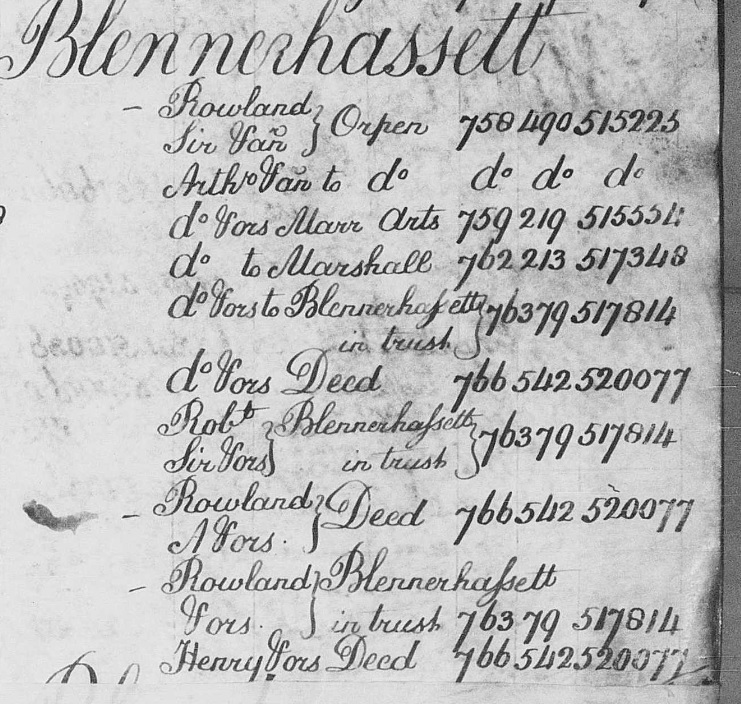 Blennerhassett
– Rowland } Orpen 758 490 515225
Sir Van
Arthr Van to do do do do
do Vors Marr Arts 759 219 515554
do to Marshall 762 213 517348
do Vors to Blennerhassett } 763 79 517814
in trust
do Vors Deed 766 542 520077
Robt } Blennerhassett } 763 79 517814
Sir Vors in trust
– Rowland } Deed 766 542 520077
A Vors.
– Rowland } Blennerhassett
Vors. in trust 763 79 517814
Henry Vors Deed 766 542 520077